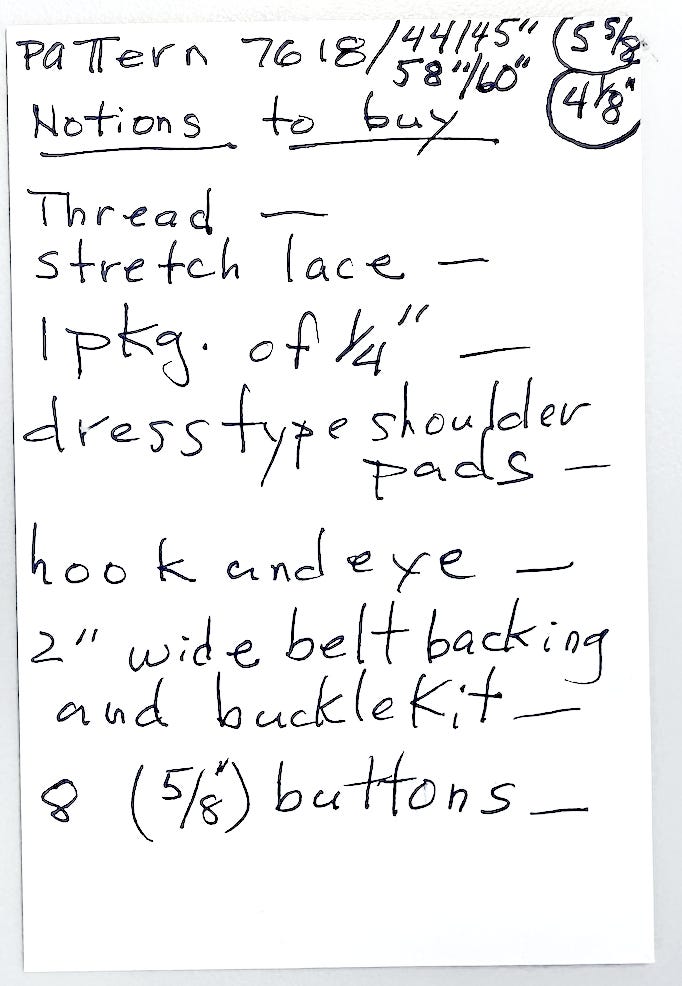 Pattern 7618/44/45" (5 5/8
58"/60" (4 1/8"
Notions to buy
Thread —
stretch lace —
1 pkg. of 1/4" —
dress type shoulder
pads —
hook and eye —
2" wide belt backing
and buckle kit —
8 (5/8") buttons —